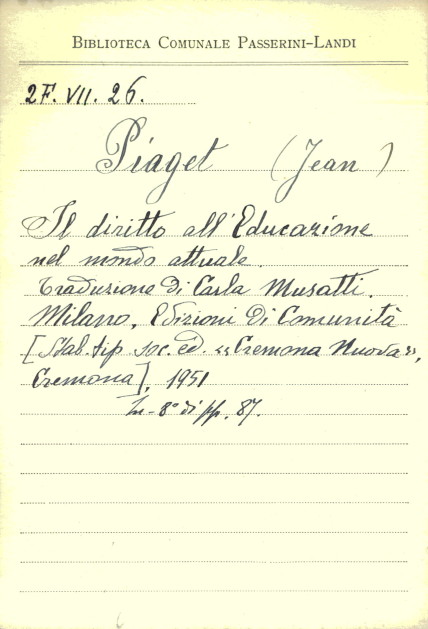 BIBLIOTECA COMUNALE PASSERINI-LANDI
2F. VII. 26.
Piaget (Jean)
Il diritto all'Educazione
nel mondo attuale.
Traduzione di Carla Musatti.
Milano, Edizioni di Comunità
[Stab. tip. soc. ed. «Cremona Nuova»,
Cremona], 1951
In-8° di pp. 87.